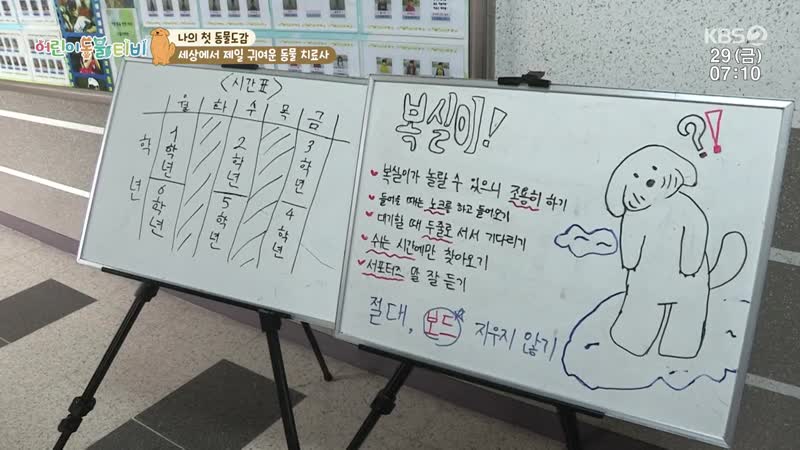 어린이동물티비
나의 첫 동물도감
세상에서 제일 귀여운 동물 치료사
KBS2
29(금)
07:10
<시간표>
월 화 수 목 금
학년
1학년 2학년 3학년
6학년 5학년 4학년
복실이!
?!
복실이가 놀랄 수 있으니 조용히 하기
들어올 때는 노크를 하고 들어오기
대기할 때 두줄로 서서 기다리기
쉬는 시간에만 찾아오기
서포터즈 말 잘 듣기
절대, 보드 지우지 않기